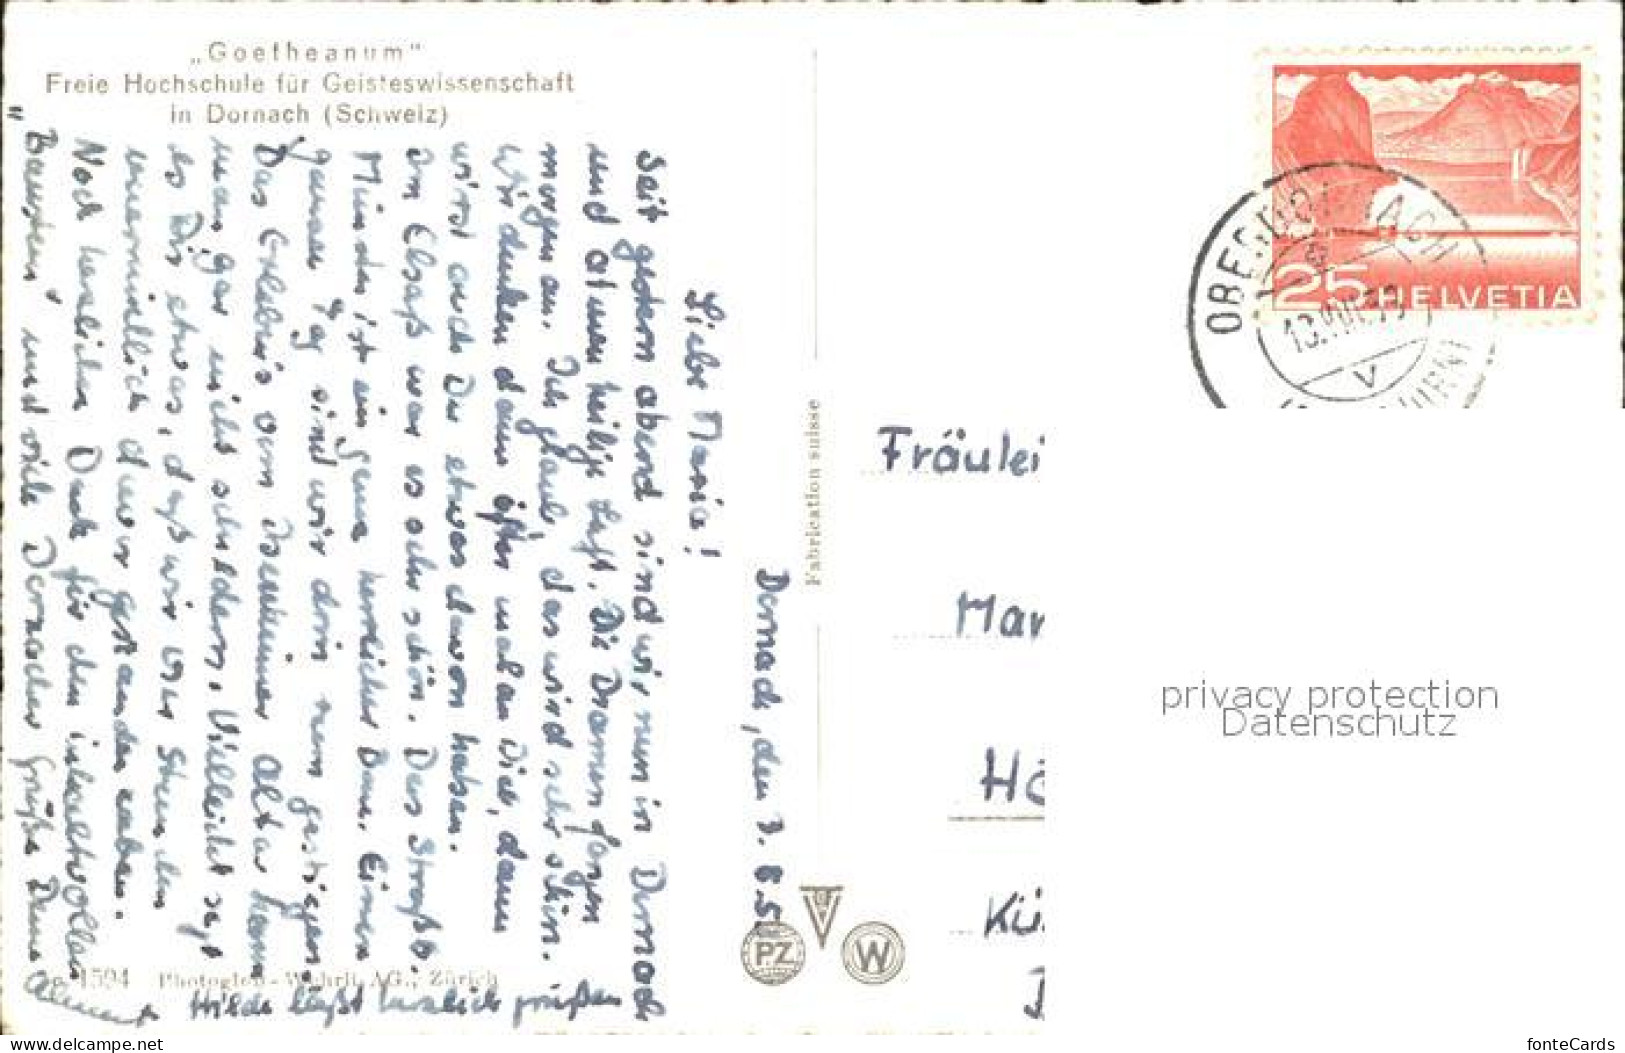 „Goetheanum“
Freie Hochschule für Geisteswissenschaft
in Dornach (Schweiz)
Dornach, den 3. 8. 5
Liebe Maria!
Seit gestern abend sind wir nun in Dornach
und atmen heilige Luft. Die Dramen fangen
morgen an. Ich glaub, das wird sehr schön.
Wir denken dann öfter mal an Dich, dann
wirst auch Du etwas davon haben.
Im Elsaß war es sehr schön. Das Straßb.
Münster ist ein ganz herrlicher Bau. Einen
ganzen Tag sind wir drin rum gestiegen.
Das Erlebnis vom Isenheimer Altar kann
man gar nicht schildern. Vielleicht sagt
es Dir etwas, daß wir vier Stunden
unermüdlich davor gestanden haben.
Noch herzlichen Dank für den inhaltvollen
„Baustein“ und viele Dornacher Grüße Deine
Hilde läßt herzlich grüßen
1594 Photoglob-Wehrli AG., Zürich
Fabrication suisse
PZ
W
25 HELVETIA
OBERDORNACH
13.VIII.53
V
Fräulei
Mar
Hö
Kü
privacy protection
Datenschutz
www.delcampe.net
fonteCards